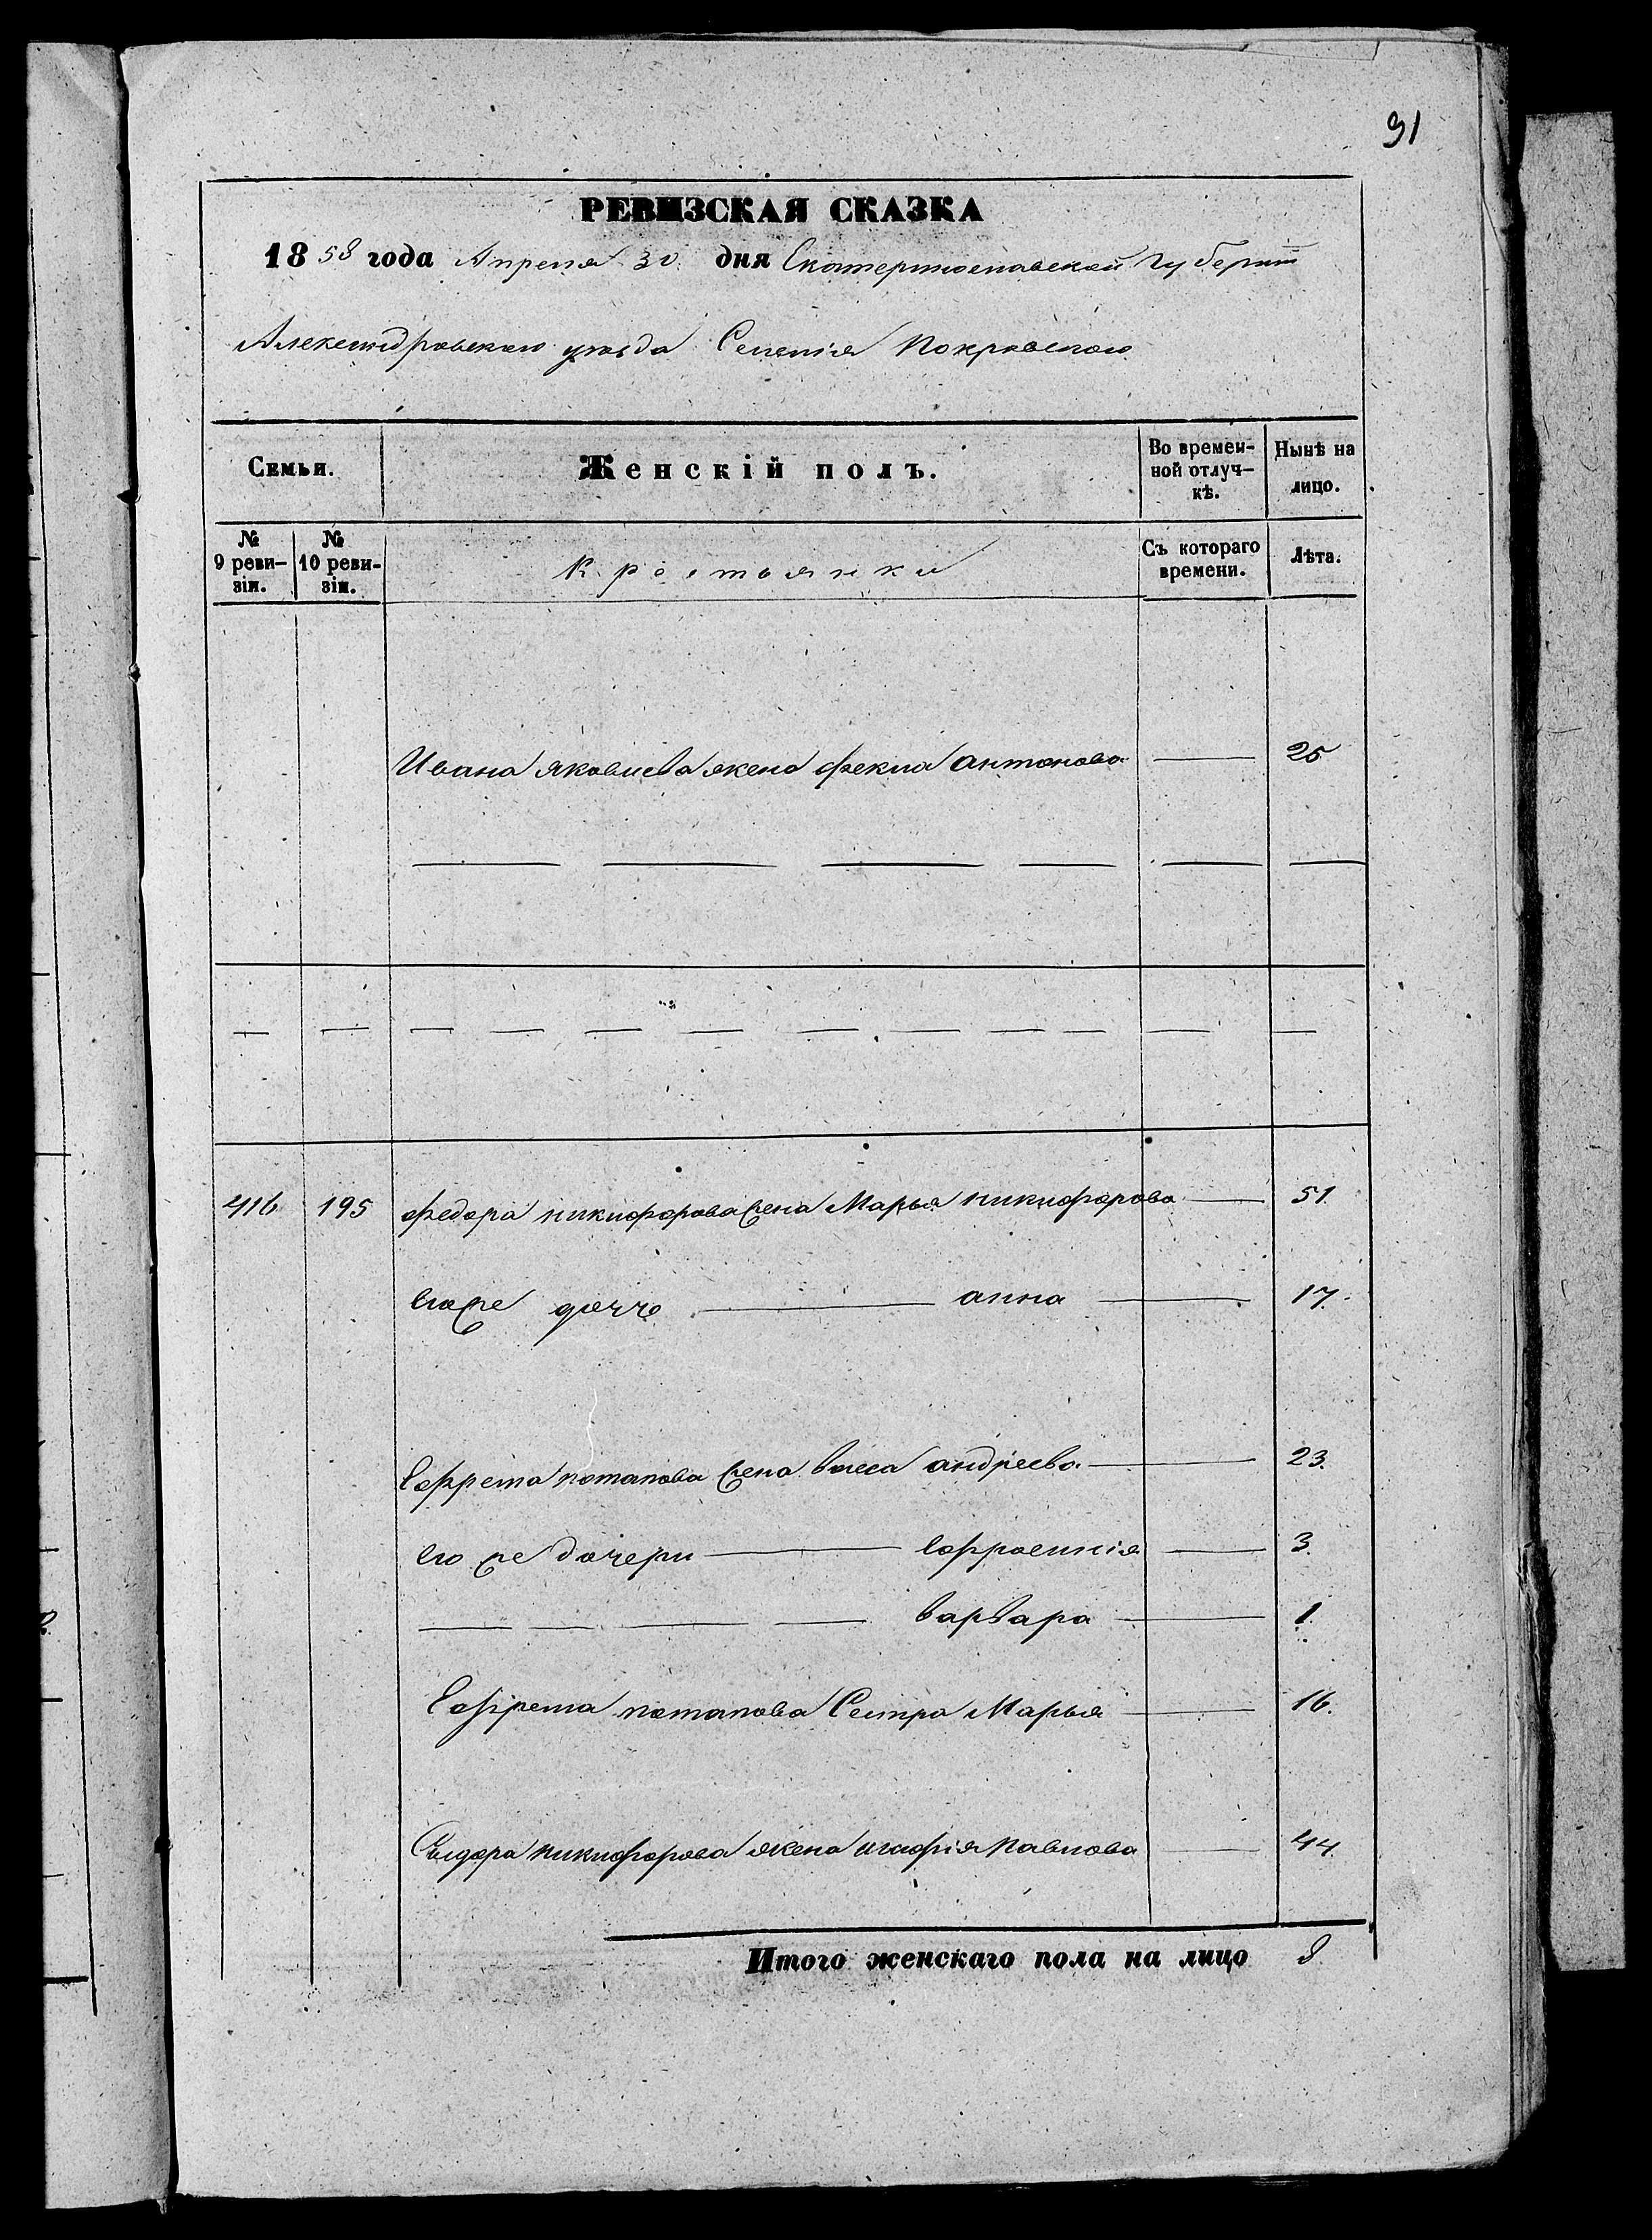 91
РЕВИЗСКАЯ СКАЗКА
1858 года Апреля 30 дня Екатеринославской губернiи
Александровскаго уѣзда Селенiя Покровскаго
Семьи. Женскiй полъ. Во времен-ной отлуч-кѣ. Нынѣ на лицо.
№ 9 реви-зiи. № 10 реви-зiи. Крестьянки Съ котораго времени. Лѣта.
Ивана яковлева жена фекла антонова 25
416 195 федора никифорова жена Марья никифорова 51.
его же дочь анна 17.
Ефрема потапова жена васса андреева 23.
его же дочери ефросинiя 3.
варвара 1.
Ефрема потапова Сестра Марья 16.
Сидора никифорова жена агафiя павлова 44.
Итого женскаго пола на лицо 8